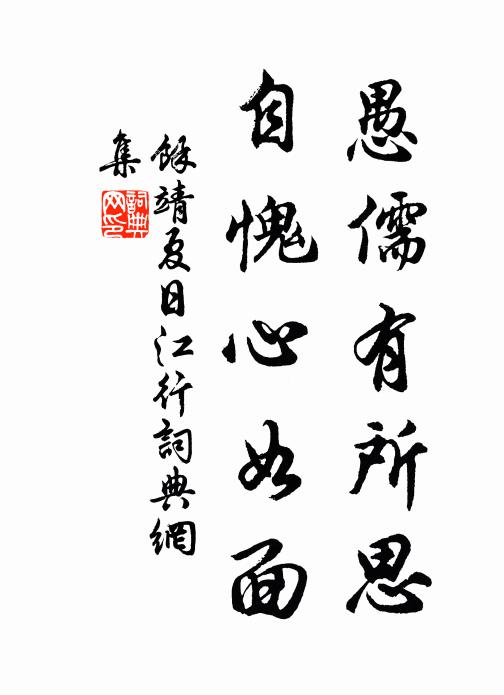 愚儒有所思
自愧心如面
餘靖夏日江行詞典網
集
詞典
网印